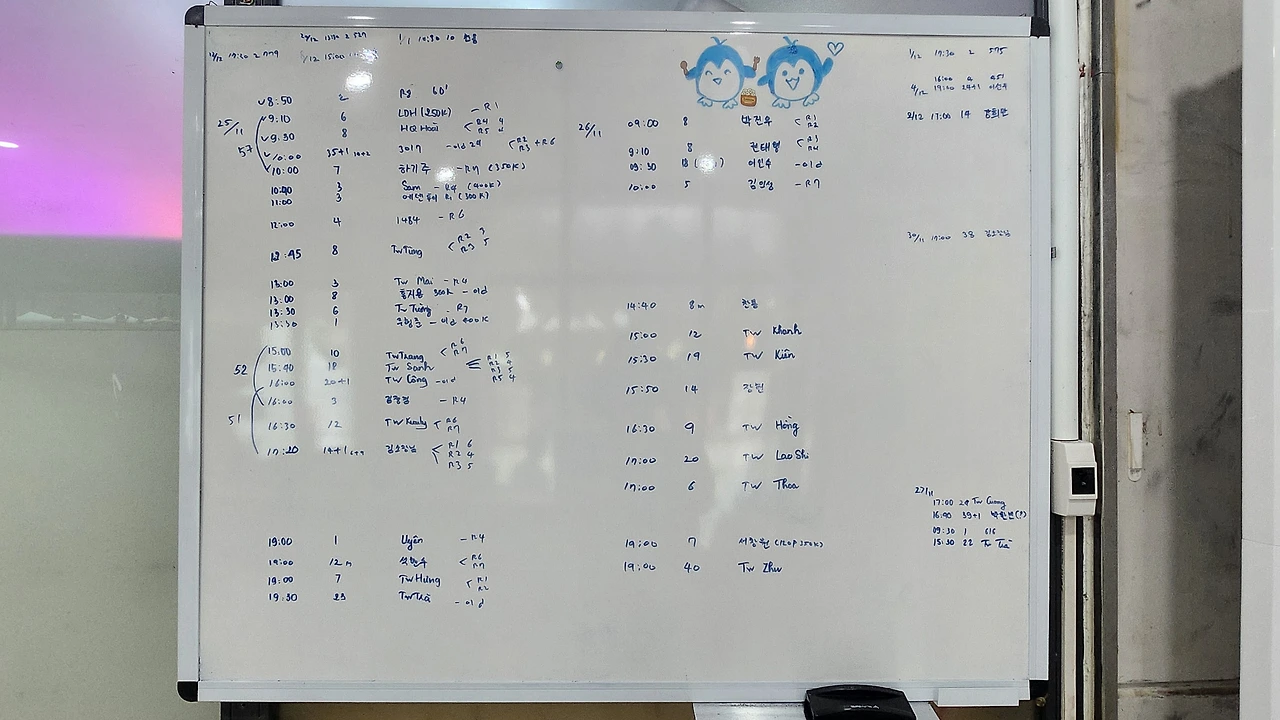 1/1 10:30 10
1/12 15:00
Pg 60'
25/11
8:50 2
9:10 6 LDH (250K) - R1
9:30 8 HQ Hoài < R4 4 R5 4
57
10:00 35+1 3017 - old 29 < R2 R3 + R6
10:00 7 하기주 - R7 (350K)
10:00 3 Sam - R4 (400K)
11:00 3 R1 (300K)
12:00 4 1484 - R6
12:45 8 Tw Tùng < R2 3 R3 5
13:00 3 Tw Mai - R4
13:00 8 300k - old
13:30 6 Tw Tường - R7
13:30 1 - old 400K
52
15:00 10 Tw Trang < R6 R7
15:40 18 Tw Sanh R1 5 R2 4 R3 5 R5 4
16:00 20+1 Tw Công - old
16:00 3 - R4
51
16:30 12 TW < R6 R7
17:20 19+1 김소장님 < R1 6 R2 4 R3 5
19:00 1 Uyên - R4
19:00 12 m < R6 R7
19:00 7 TW Hưng < R1 R2
19:30 23 Tw Trà - old
26/11
09:00 8 박진우 < R1 R2
9:10 8 권태형 < R3 R4
09:30 18 이인수 - old
10:00 5 김의성 - R7
14:40 8m
15:00 12 TW Khanh
15:30 19 TW Kiên
15:50 14 강원
16:30 9 TW Hồng
17:00 20 TW Lao Shi
17:00 6 TW Thoa
19:00 7 서창원 (120P 350K)
19:00 40 Tw Zhu
1/12 17:30 2 575
16:00 4 051
4/12 19:00 24+1 이선우
2/12 17:00 14
30/11 17:00 38 김소장님
27/11
17:00 29 Tw Cuong
16:40 39+1
09:30 1 616
15:30 22 Tw Trà